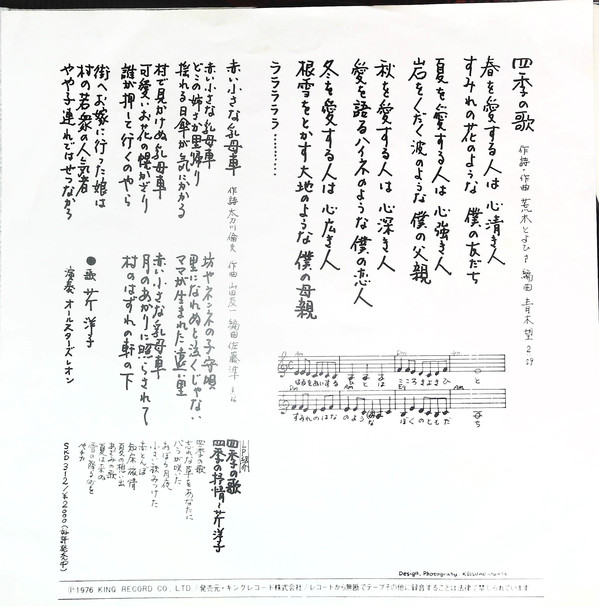 四季の歌
作詩・作曲 荒木とよひさ 編曲 青木望 2:59
春を愛する人は 心清き人
すみれの花のような 僕の友だち
夏を愛する人は 心強き人
岩をくだく波のような 僕の父親
秋を愛する人は 心深き人
愛を語るハイネのような 僕の恋人
冬を愛する人は 心広き人
根雪をとかす大地のような 僕の母親
ララララララ…………
Am
Dm
Am
はるをあいする ひとは こころきよきひ と
Dm
Am
Am
すみれのはなの ような ぼくのともだ ち
赤い小さな乳母車
作詩 太刀川倫夫 作曲 山田友一 編曲 佐藤準
赤い小さな乳母車
どこの姉さか里帰り
揺れる日傘が気にかかる
村で見かけぬ乳母車
可愛いお花の幌かざり
誰が押して行くのやら
街へお嫁に行った娘は
村の若衆の人気者
やや子連れではせつなかろ
坊やネンネの子守唄
里になれぬと泣くじゃない
ママが生まれた遠い里
赤い小さな乳母車
月のあかりに照らされて
村のはずれの軒の下
●歌 芹洋子
演奏 オールスターズ・レオン
LP紹介
四季の歌
四季の抒情〜芹洋子
四季の歌
忘れな草をあなたに
バラが咲いた
おぼろ月夜
小さい秋みつけた
赤とんぼ
知床旅情
あざみの歌
夏の想い出
夏は来ぬ
雪の降るまちを
ペチカ
SKD 312/¥2000(好評発売中)
Design, Photography・
Ⓟ1976 KING RECORD CO., LTD/発売元・キングレコード株式会社/レコードから無断でテープその他に録音することは法律で禁じられています